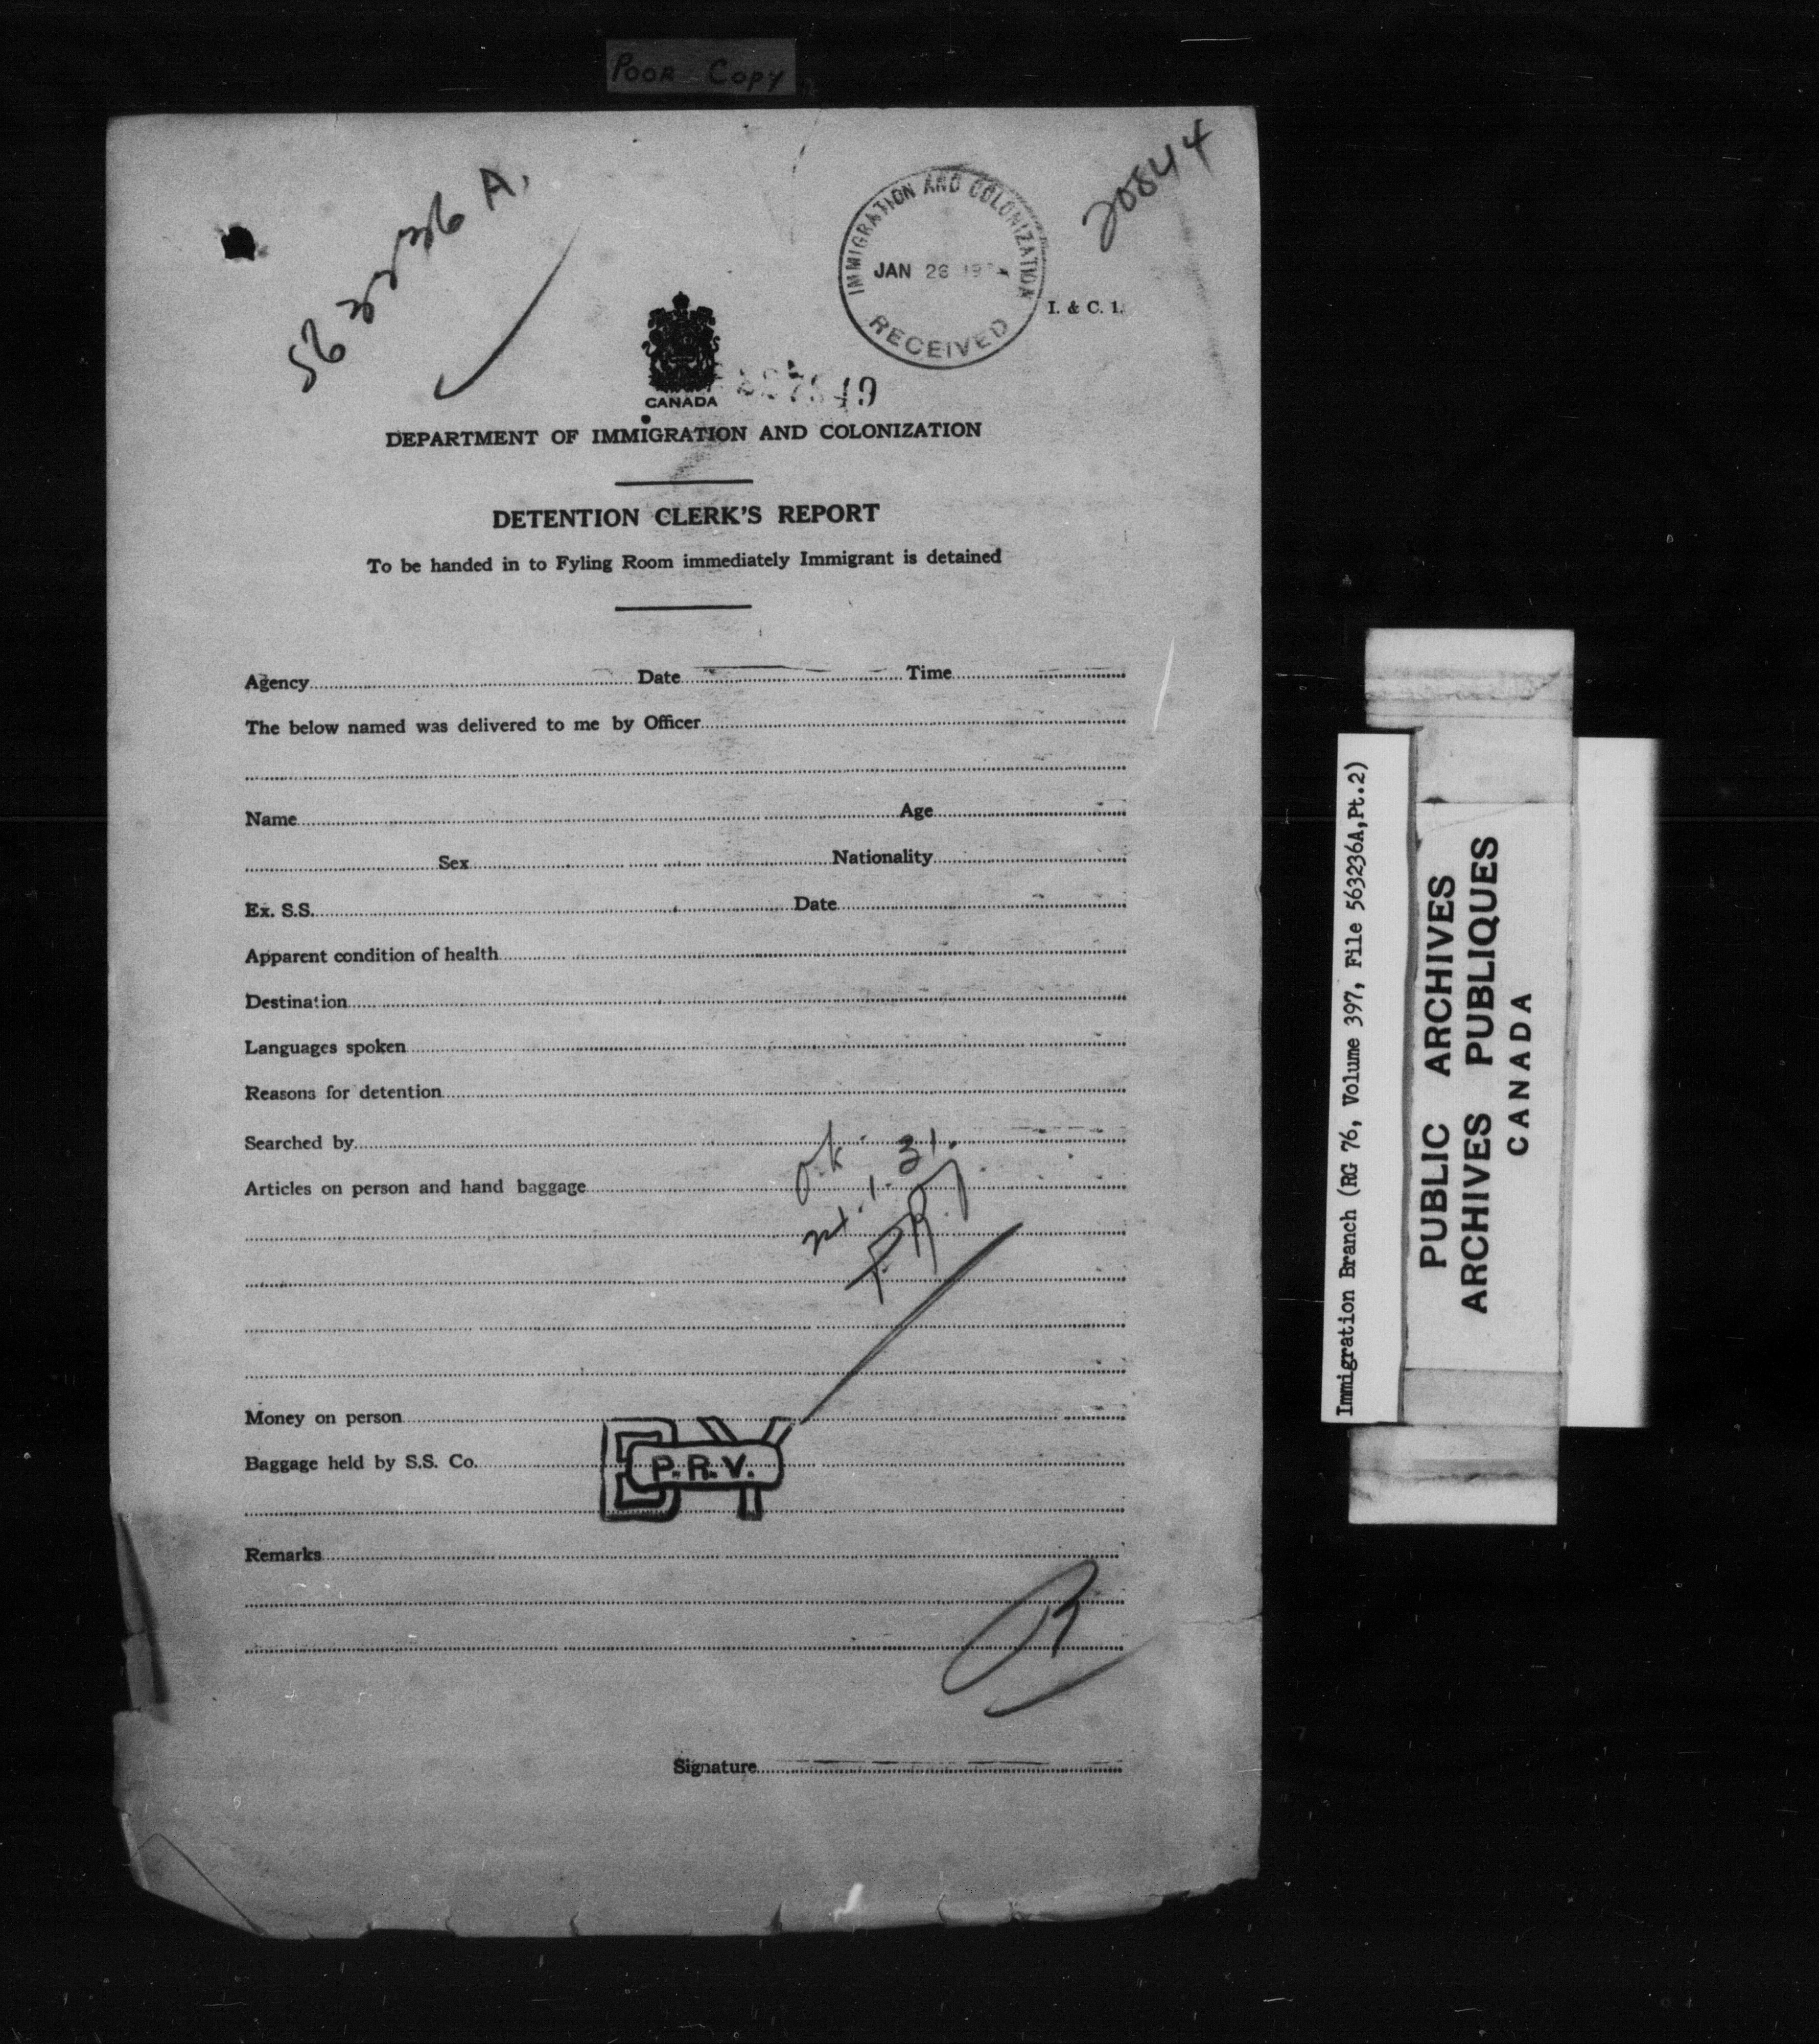 POOR COPY
563236 A.
20844
IMMIGRATION AND COLONIZATION
JAN 26
RECEIVED
I. & C. 1.
CANADA
DEPARTMENT OF IMMIGRATION AND COLONIZATION
DETENTION CLERK'S REPORT
To be handed in to Fyling Room immediately Immigrant is detained
Agency Date Time
The below named was delivered to me by Officer
Name Age
Sex Nationality
Ex. S.S. Date
Apparent condition of health
Destination
Languages spoken
Reasons for detention
Searched by
Articles on person and hand baggage
Money on person
Baggage held by S.S. Co.
P.R.V.
Remarks
Signature
Immigration Branch (RG 76, Volume 397, File 563236A,Pt.2)
PUBLIC ARCHIVES
ARCHIVES PUBLIQUES
CANADA